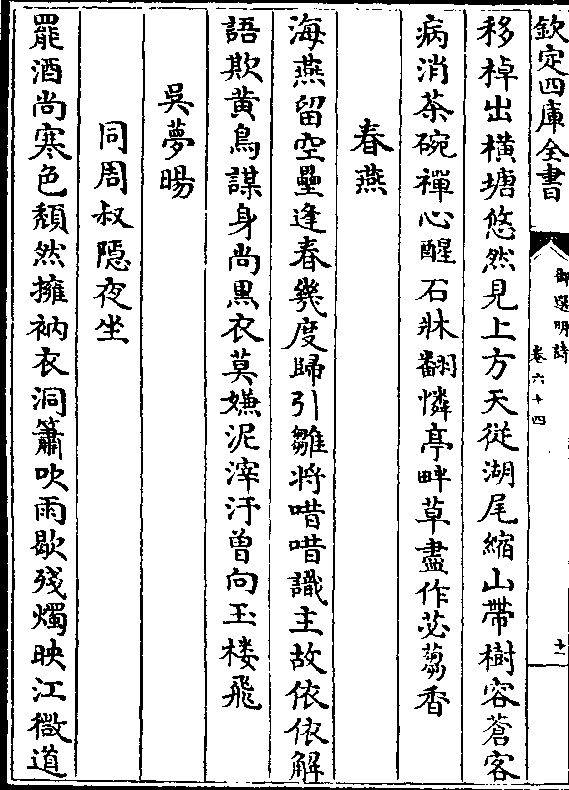 欽定四庫全書
御選明詩
卷六十四
十一
移棹出横塘悠然見上方天従湖尾縮山帶樹容蒼客
病消茶碗禪心醒石牀翻憐亭畔草盡作苾蒭香
春燕
海燕留空壘逢春幾度歸引雛將唶唶識主故依依解
語欺黄鳥謀身尚黒衣莫嫌泥滓汙曽向玉樓飛
吳夢暘
同周叔隠夜坐
罷酒尚寒色頽然擁衲衣洞簫吹雨歇殘燭映江微道